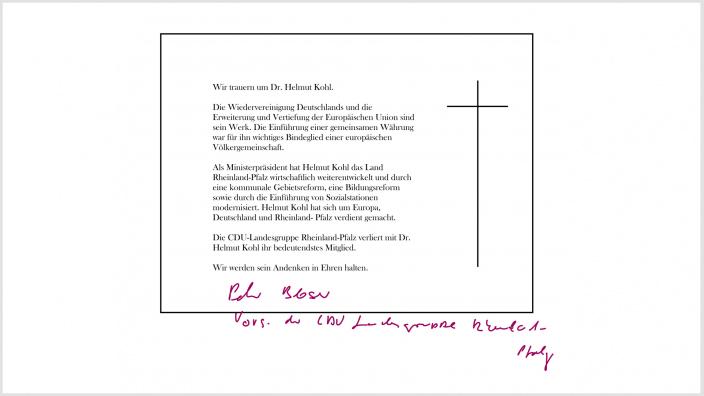 Wir trauern um Dr. Helmut Kohl.
Die Wiedervereinigung Deutschlands und die
Erweiterung und Vertiefung der Europäischen Union sind
sein Werk. Die Einführung einer gemeinsamen Währung
war für ihn wichtiges Bindeglied einer europäischen
Völkergemeinschaft.
Als Ministerpräsident hat Helmut Kohl das Land
Rheinland-Pfalz wirtschaftlich weiterentwickelt und durch
eine kommunale Gebietsreform, eine Bildungsreform
sowie durch die Einführung von Sozialstationen
modernisiert. Helmut Kohl hat sich um Europa,
Deutschland und Rheinland- Pfalz verdient gemacht.
Die CDU-Landesgruppe Rheinland-Pfalz verliert mit Dr.
Helmut Kohl ihr bedeutendstes Mitglied.
Wir werden sein Andenken in Ehren halten.
Vors. der CDU Landesgruppe Rheinland-
Pfalz